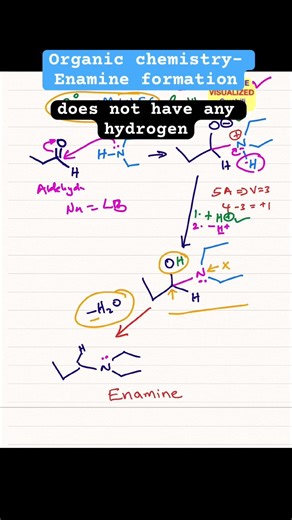 Organic chemistry-
Enamine formation
VISUALIZED
does not have any
hydrogen
O
H
H-N
O
N
H
H
Aldehyde
Nu = LB
5A ⇒ V=3
4 - 3 = +1
1. + H+ ✓
2. - H+
OH
N ← x
H
-H2O
H
N
Enamine